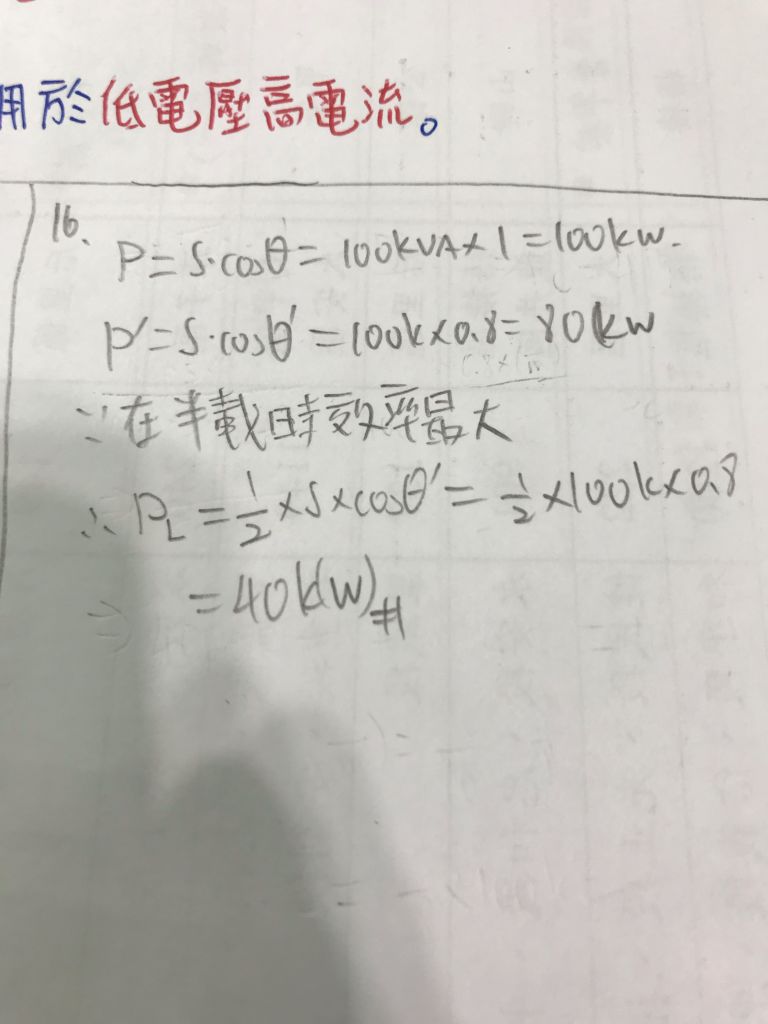 用於低電壓高電流。
16.
P = S·cosθ = 100kVA × 1 = 100kw.
P' = S·cosθ' = 100k × 0.8 = 80kw
∵在半載時效率最大
∴ PL = 1/2 × S × cosθ' = 1/2 × 100k × 0.8
= 40k(W)#